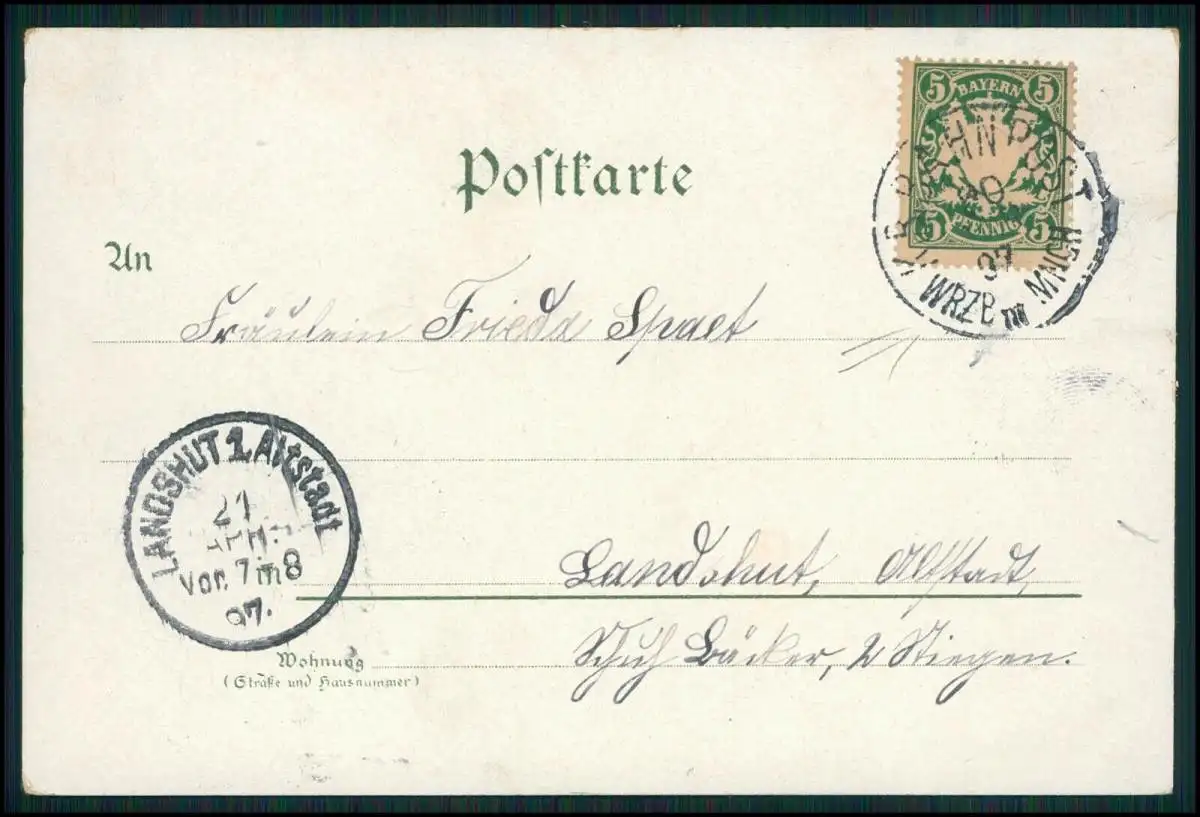 5 BAYERN 5
5 PFENNIG 5
BAHNPOST
20
97
WRZB MNCH
Postkarte
An
Fräulein Frieda Spaet
LANDSHUT 1. Altstadt
21
APR.
Vor. 7-8
97.
Landshut, Altstadt,
Wohnung
(Straße und Hausnummer)
Schuh Bäcker, 2 Stiegen.